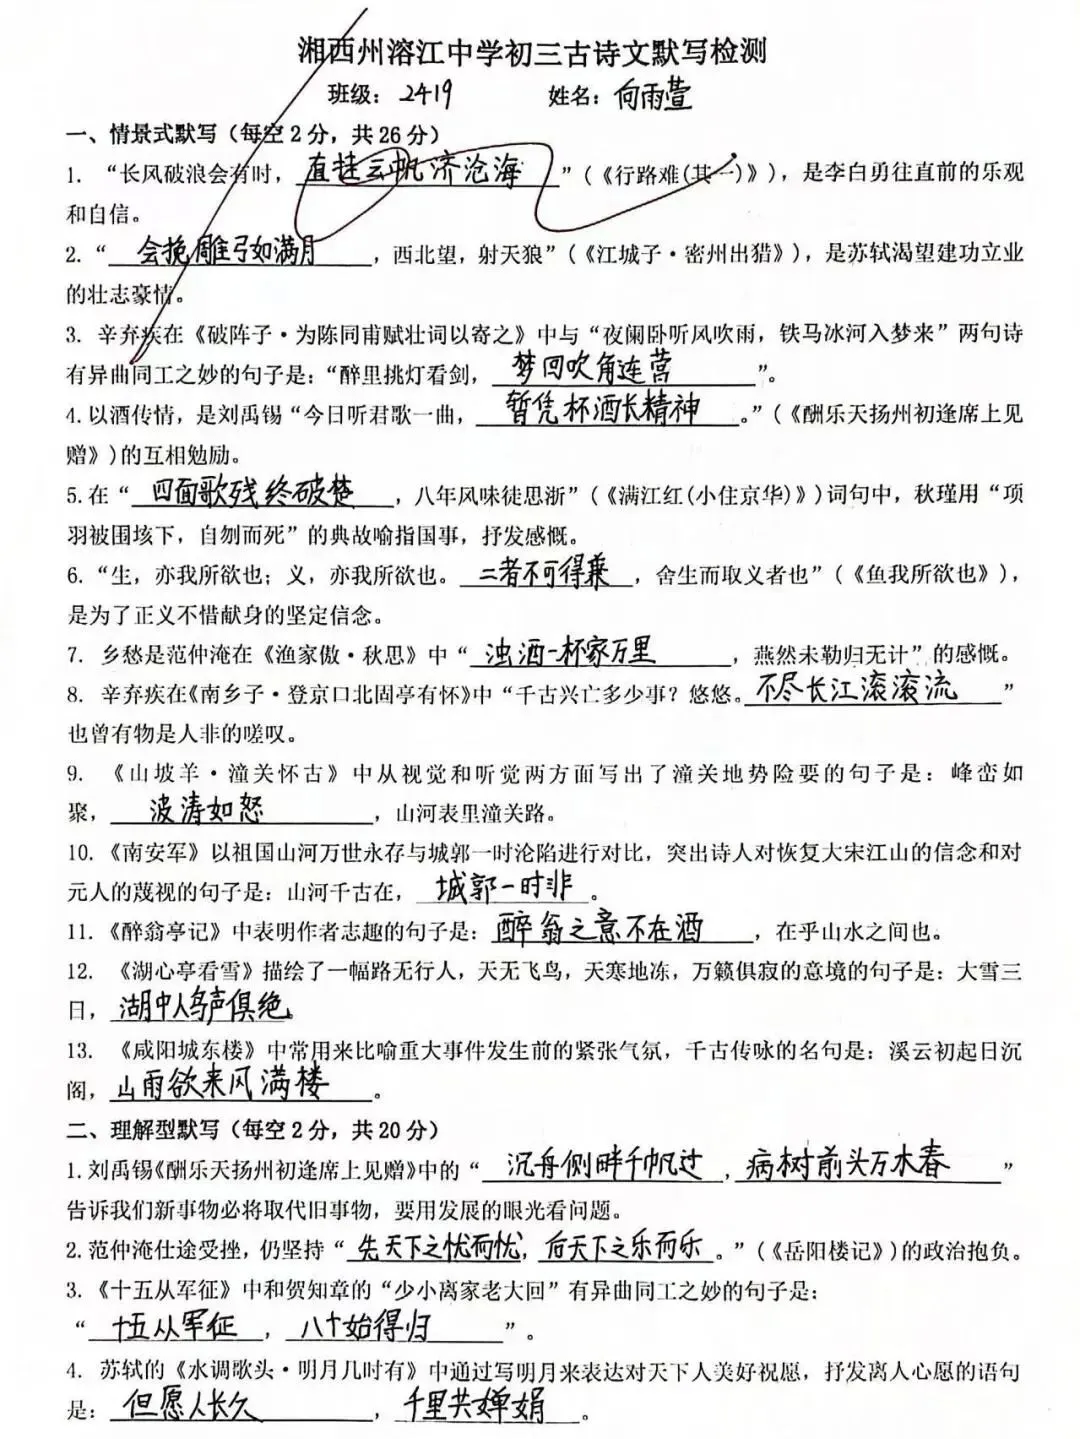 湘西州溶江中学初三古诗文默写检测
班级：2419 姓名：向雨萱
一、情景式默写（每空2分，共26分）
1. “长风破浪会有时，直挂云帆济沧海”(《行路难(其一)》)，是李白勇往直前的乐观
和自信。
2. “会挽雕弓如满月，西北望，射天狼”(《江城子·密州出猎》)，是苏轼渴望建功立业
的壮志豪情。
3. 辛弃疾在《破阵子·为陈同甫赋壮词以寄之》中与“夜阑卧听风吹雨，铁马冰河入梦来”两句诗
有异曲同工之妙的句子是：“醉里挑灯看剑，梦回吹角连营”。
4.以酒传情，是刘禹锡“今日听君歌一曲，暂凭杯酒长精神。”(《酬乐天扬州初逢席上见
赠》)的互相勉励。
5.在“四面歌残终破楚，八年风味徒思浙”(《满江红(小住京华)》)词句中，秋瑾用“项
羽被围垓下，自刎而死”的典故喻指国事，抒发感慨。
6.“生，亦我所欲也；义，亦我所欲也。二者不可得兼，舍生而取义者也”(《鱼我所欲也》)，
是为了正义不惜献身的坚定信念。
7. 乡愁是范仲淹在《渔家傲·秋思》中“浊酒一杯家万里，燕然未勒归无计”的感慨。
8. 辛弃疾在《南乡子·登京口北固亭有怀》中“千古兴亡多少事？悠悠。不尽长江滚滚流”
也曾有物是人非的嗟叹。
9. 《山坡羊·潼关怀古》中从视觉和听觉两方面写出了潼关地势险要的句子是：峰峦如
聚，波涛如怒，山河表里潼关路。
10.《南安军》以祖国山河万世永存与城郭一时沦陷进行对比，突出诗人对恢复大宋江山的信念和对
元人的蔑视的句子是：山河千古在，城郭一时非。
11.《醉翁亭记》中表明作者志趣的句子是：醉翁之意不在酒，在乎山水之间也。
12. 《湖心亭看雪》描绘了一幅路无行人，天无飞鸟，天寒地冻，万籁俱寂的意境的句子是：大雪三
日，湖中人鸟声俱绝。
13. 《咸阳城东楼》中常用来比喻重大事件发生前的紧张气氛，千古传咏的名句是：溪云初起日沉
阁，山雨欲来风满楼。
二、理解型默写（每空2分，共20分）
1.刘禹锡《酬乐天扬州初逢席上见赠》中的“沉舟侧畔千帆过，病树前头万木春”
告诉我们新事物必将取代旧事物，要用发展的眼光看问题。
2.范仲淹仕途受挫，仍坚持“先天下之忧而忧，后天下之乐而乐。”(《岳阳楼记》)的政治抱负。
3.《十五从军征》中和贺知章的“少小离家老大回”有异曲同工之妙的句子是：
“十五从军征，八十始得归”。
4. 苏轼的《水调歌头·明月几时有》中通过写明月来表达对天下人美好祝愿，抒发离人心愿的语句
是：但愿人长久，千里共婵娟。